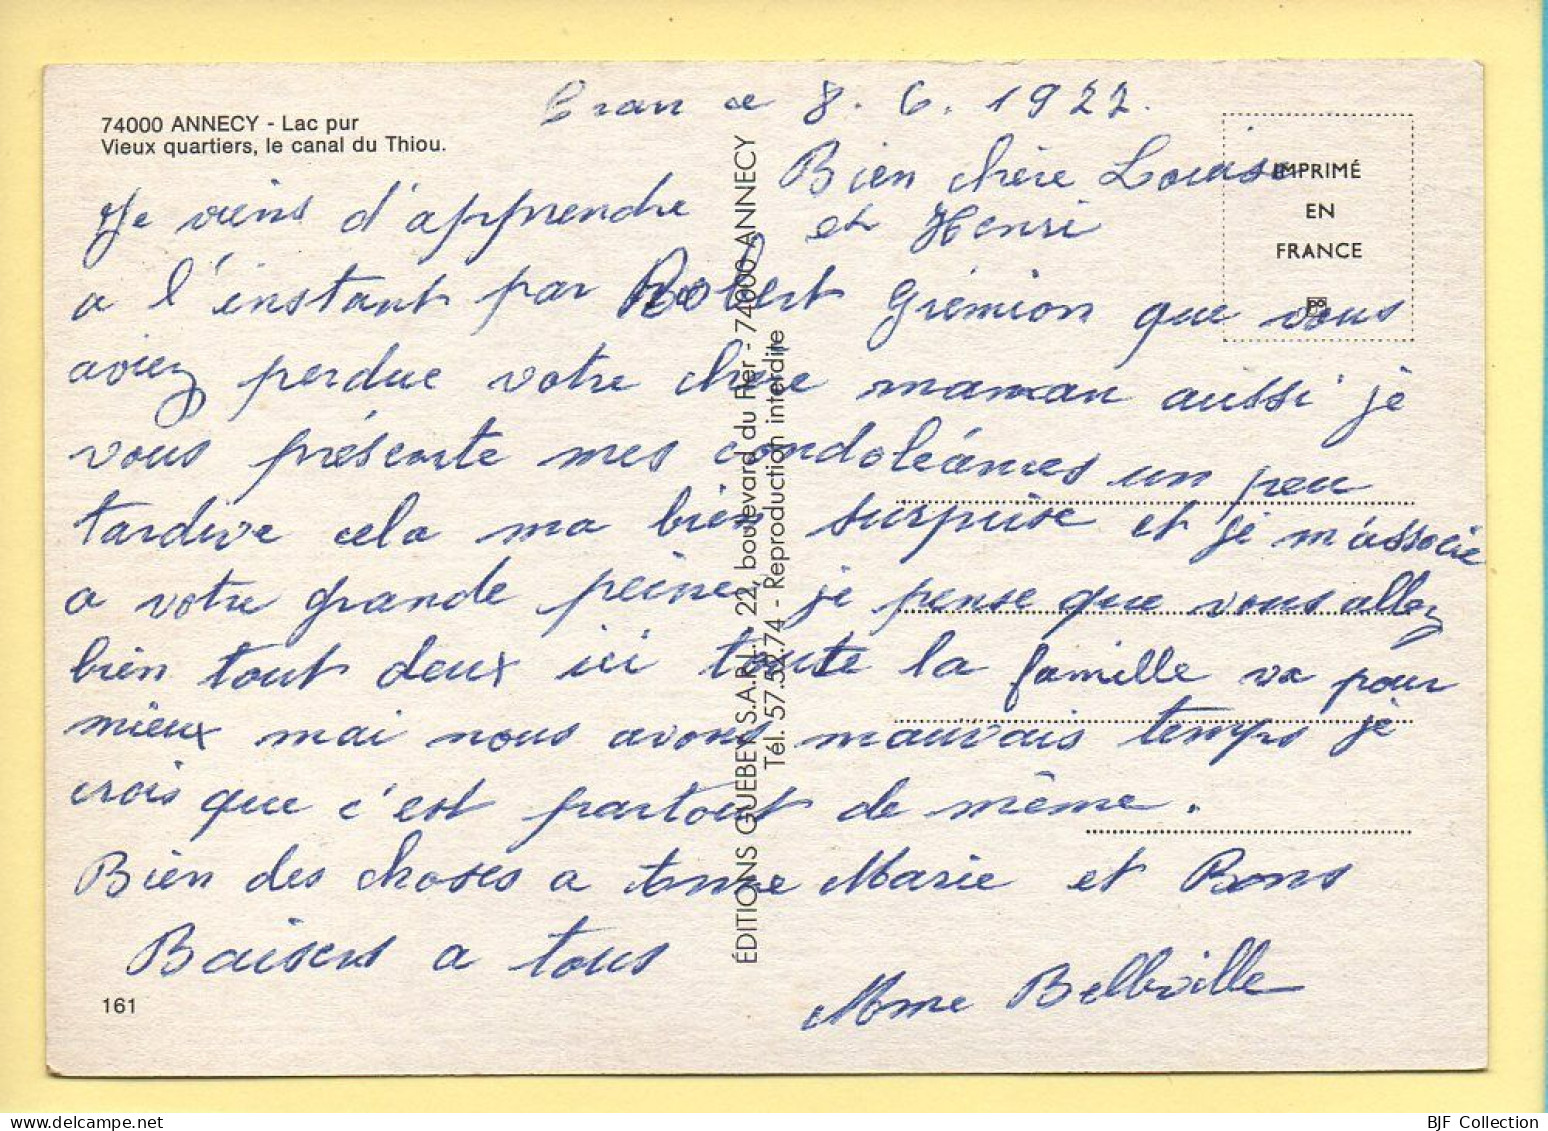 74000 ANNECY - Lac pur
Vieux quartiers, le canal du Thiou.
Cran le 8. 6. 1977.
Bien chère Louise
et Henri
Je viens d'apprendre
a l'instant par Robert Grémion que vous
aviez perdue votre chère maman aussi je
vous présente mes condoléances un peu
tardive cela ma bien surprise et je m'associe
a votre grande peine, je pense que vous allez
bien tout deux ici toute la famille va pour
mieux mai nous avons mauvais temps je
crois que c'est partout de même.
Bien des choses a Anne Marie et Bons
Baisers a tous
Mme Bellville
161
ÉDITIONS GUEBEY S.A.R.L. 22, boulevard du Fier - 74000 ANNECY
Tél. 57.52.74 - Reproduction interdite
IMPRIMÉ
EN
FRANCE
BJF Collection